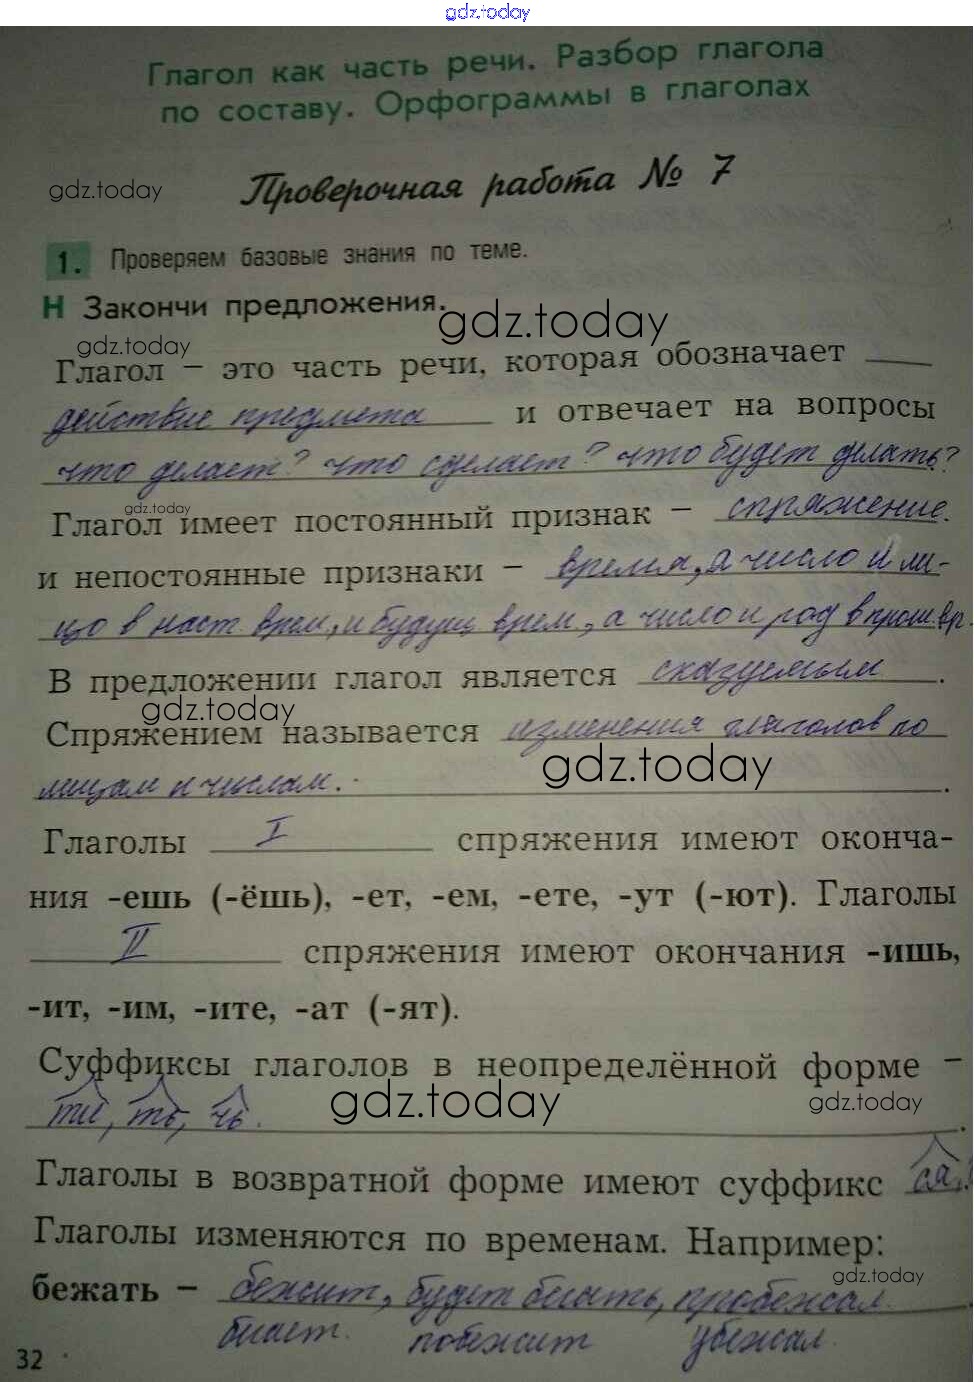 gdz.today
Глагол как часть речи. Разбор глагола
по составу. Орфограммы в глаголах
gdz.today
Проверочная работа № 7
1. Проверяем базовые знания по теме.
Н Закончи предложения.
gdz.today
gdz.today
Глагол – это часть речи, которая обозначает
действие предмета и отвечает на вопросы
что делает? что сделает? что будет делать?
gdz.today
Глагол имеет постоянный признак – спряжение.
и непостоянные признаки – время, а число и ли-
цо в наст. врем, и будущ врем, а число и род в прош. вр.
В предложении глагол является сказуемым.
gdz.today
Спряжением называется изменения глаголов по
gdz.today
лицам и числам.
Глаголы I спряжения имеют оконча-
ния -ешь (-ёшь), -ет, -ем, -ете, -ут (-ют). Глаголы
II спряжения имеют окончания -ишь,
-ит, -им, -ите, -ат (-ят).
Суффиксы глаголов в неопределённой форме –
ти, ть, чь.
gdz.today
gdz.today
Глаголы в возвратной форме имеют суффикс ся,
Глаголы изменяются по временам. Например:
gdz.today
бежать – бежит, будет бегать, пробежал.
побежит убежал.
32